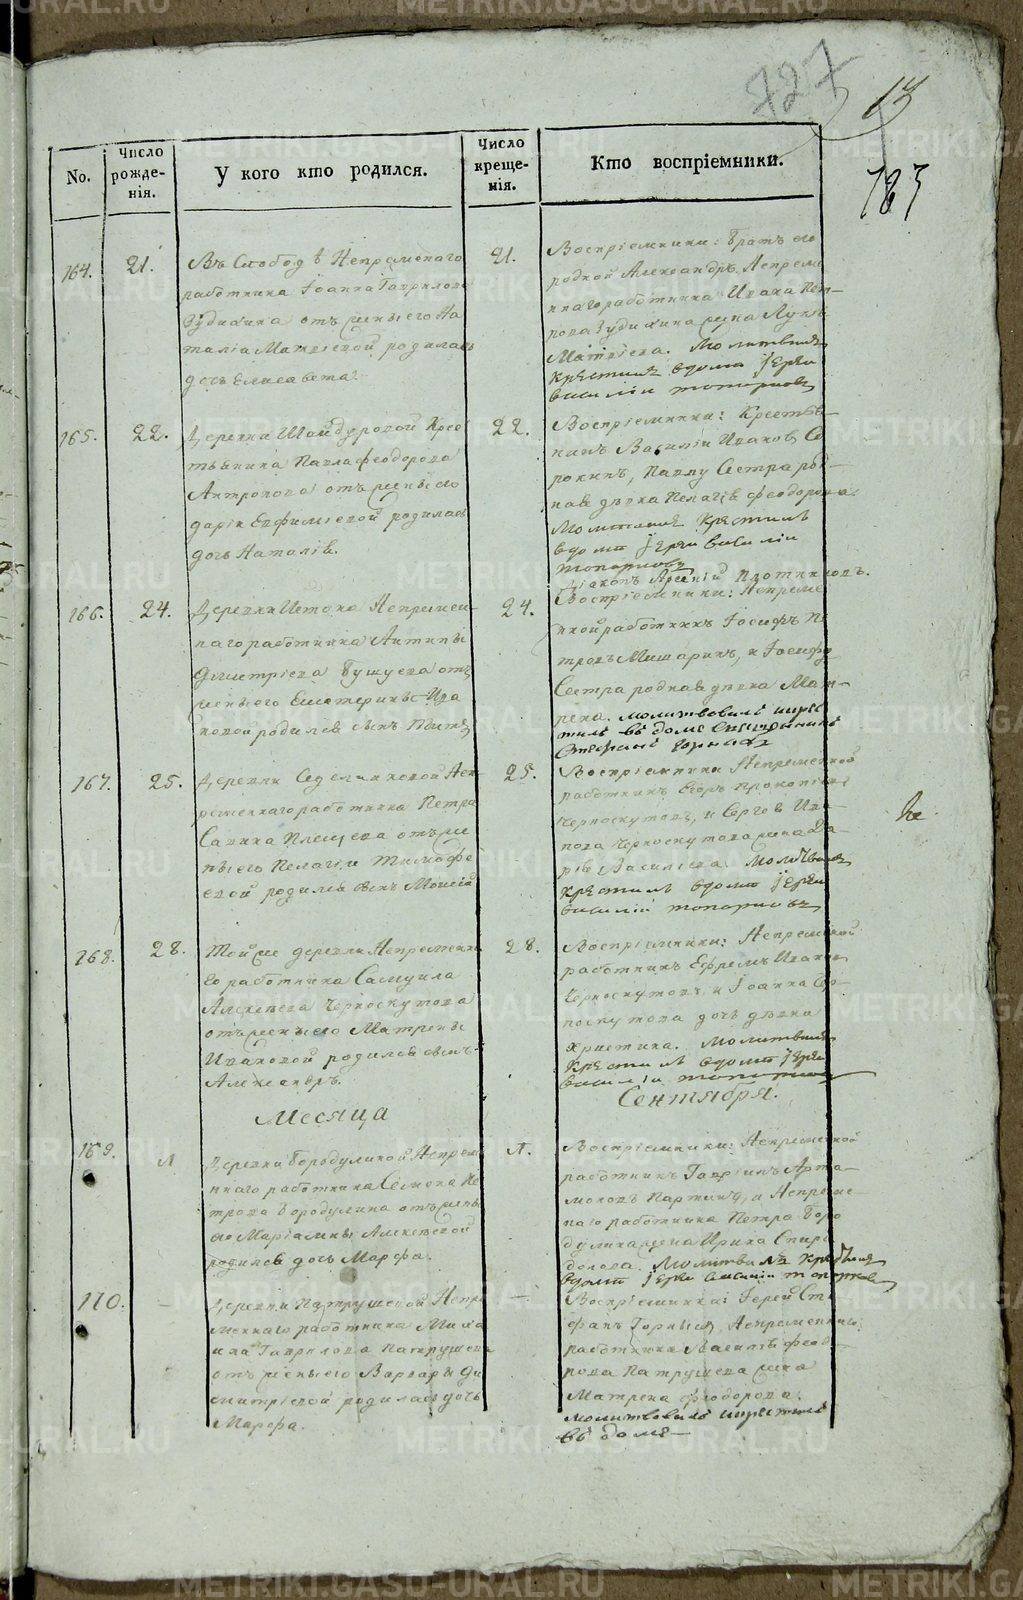 727
13
183
No.
Число рожде-нія.
У кого кто родился.
Число креще-нія.
Кто воспріемники.
164.
21.
Въ Слободѣ Непремѣнаго
работника Іоанна Гаврилова
отъ жены его На
таліи Матвѣевой родилась
дочь Елисавета.
21.
Воспріемники: Братъ его
родной Александръ, Непреме
ннаго работника Ивана Пет-
рова жена
Матвѣева. Молитвилъ
крестилъ вдоме іерей
василіи топорковъ
165.
22.
Деревни Шайдуровой Крес
тьянина Павла Феодорова
Антропова отъ жены его
Даріи Евфимѣевой родилась
дочь Наталія.
22.
Воспріемники: Крестья-
нинъ Василіи Ивановъ Со
рокинъ, Павлу Сестра род-
ная дѣвка Пелагія Феодорова.
Молитвилъ Крестилъ
вдоме іереи василіи
топорковъ
Діаконъ Арсеній Плотниковъ.
166.
24.
Деревни Истока Непремен-
наго работника Антипы
Димитріева Бушуева отъ
жены его Екатерины Ива
новой родился сынъ Титъ
24.
Воспріемники: Непреме
нной работникъ Іосифъ Пе
тровъ Мишаринъ, и Іосифу
Сестра родная дѣвка Мат-
рена. молитвовалъ икрес
тилъ въ доме Священникъ
Стефанъ Горныхъ
167.
25.
Деревни Седельниковой Неп
ременнаго работника Петра
Савина Плещева отъ же
ны его Пелагіи Тимофе
евой родился сынъ Моисей
25.
Воспріемники Непременной
работникъ Егоръ Прокопіевъ
Черноскутовъ, и Сергея Ива-
нова Черноскутова жена Да-
рія Васильева. Молитвилъ
крестилъ вдоме іереи
василіи топорковъ
168.
28.
Той же деревни Непременна
го работника Самуила
Алексѣева Черноскутова
отъ жены его Матрены
Ивановой родился сынъ
Александръ.
28.
Воспріемники: Непременной
работникъ Ефремъ Ивановъ
Черноскутовъ, и Іоанна Чер-
носкутова дочь дѣвка
Христина. Молитвилъ
Крестилъ вдоме іереи
василіи топорковъ
Месяца
Сентября.
169.
1.
Деревни Бородулиной Непреме
ннаго работника Семена Пе
трова Бородулина отъ жены
его Маріамны Алексѣевой
родилась дочь Марфа.
1.
Воспріемники: Непременной
работникъ Гавріилъ Арта-
моновъ Паргинъ, и Непреме-
ннаго работника Петра Боро
дулина жена Ирина Спири
донова. Молитвилъ Крестилъ
вдоме іереи василіи топорковъ
170.
—
Деревни Патрушевой Непре
меннаго работника Миха
ила Гаврилова Патрушева
отъ жены его Варвары Ди
митріевой родилась дочь
Марфа.
—
Воспріемники: Іерей Сте
фанъ Горныхъ, Непременнаго
работника Василія Феодо
рова Патрушева жена
Матрена Феодорова.
молитвовалъ икрестилъ
въ доме